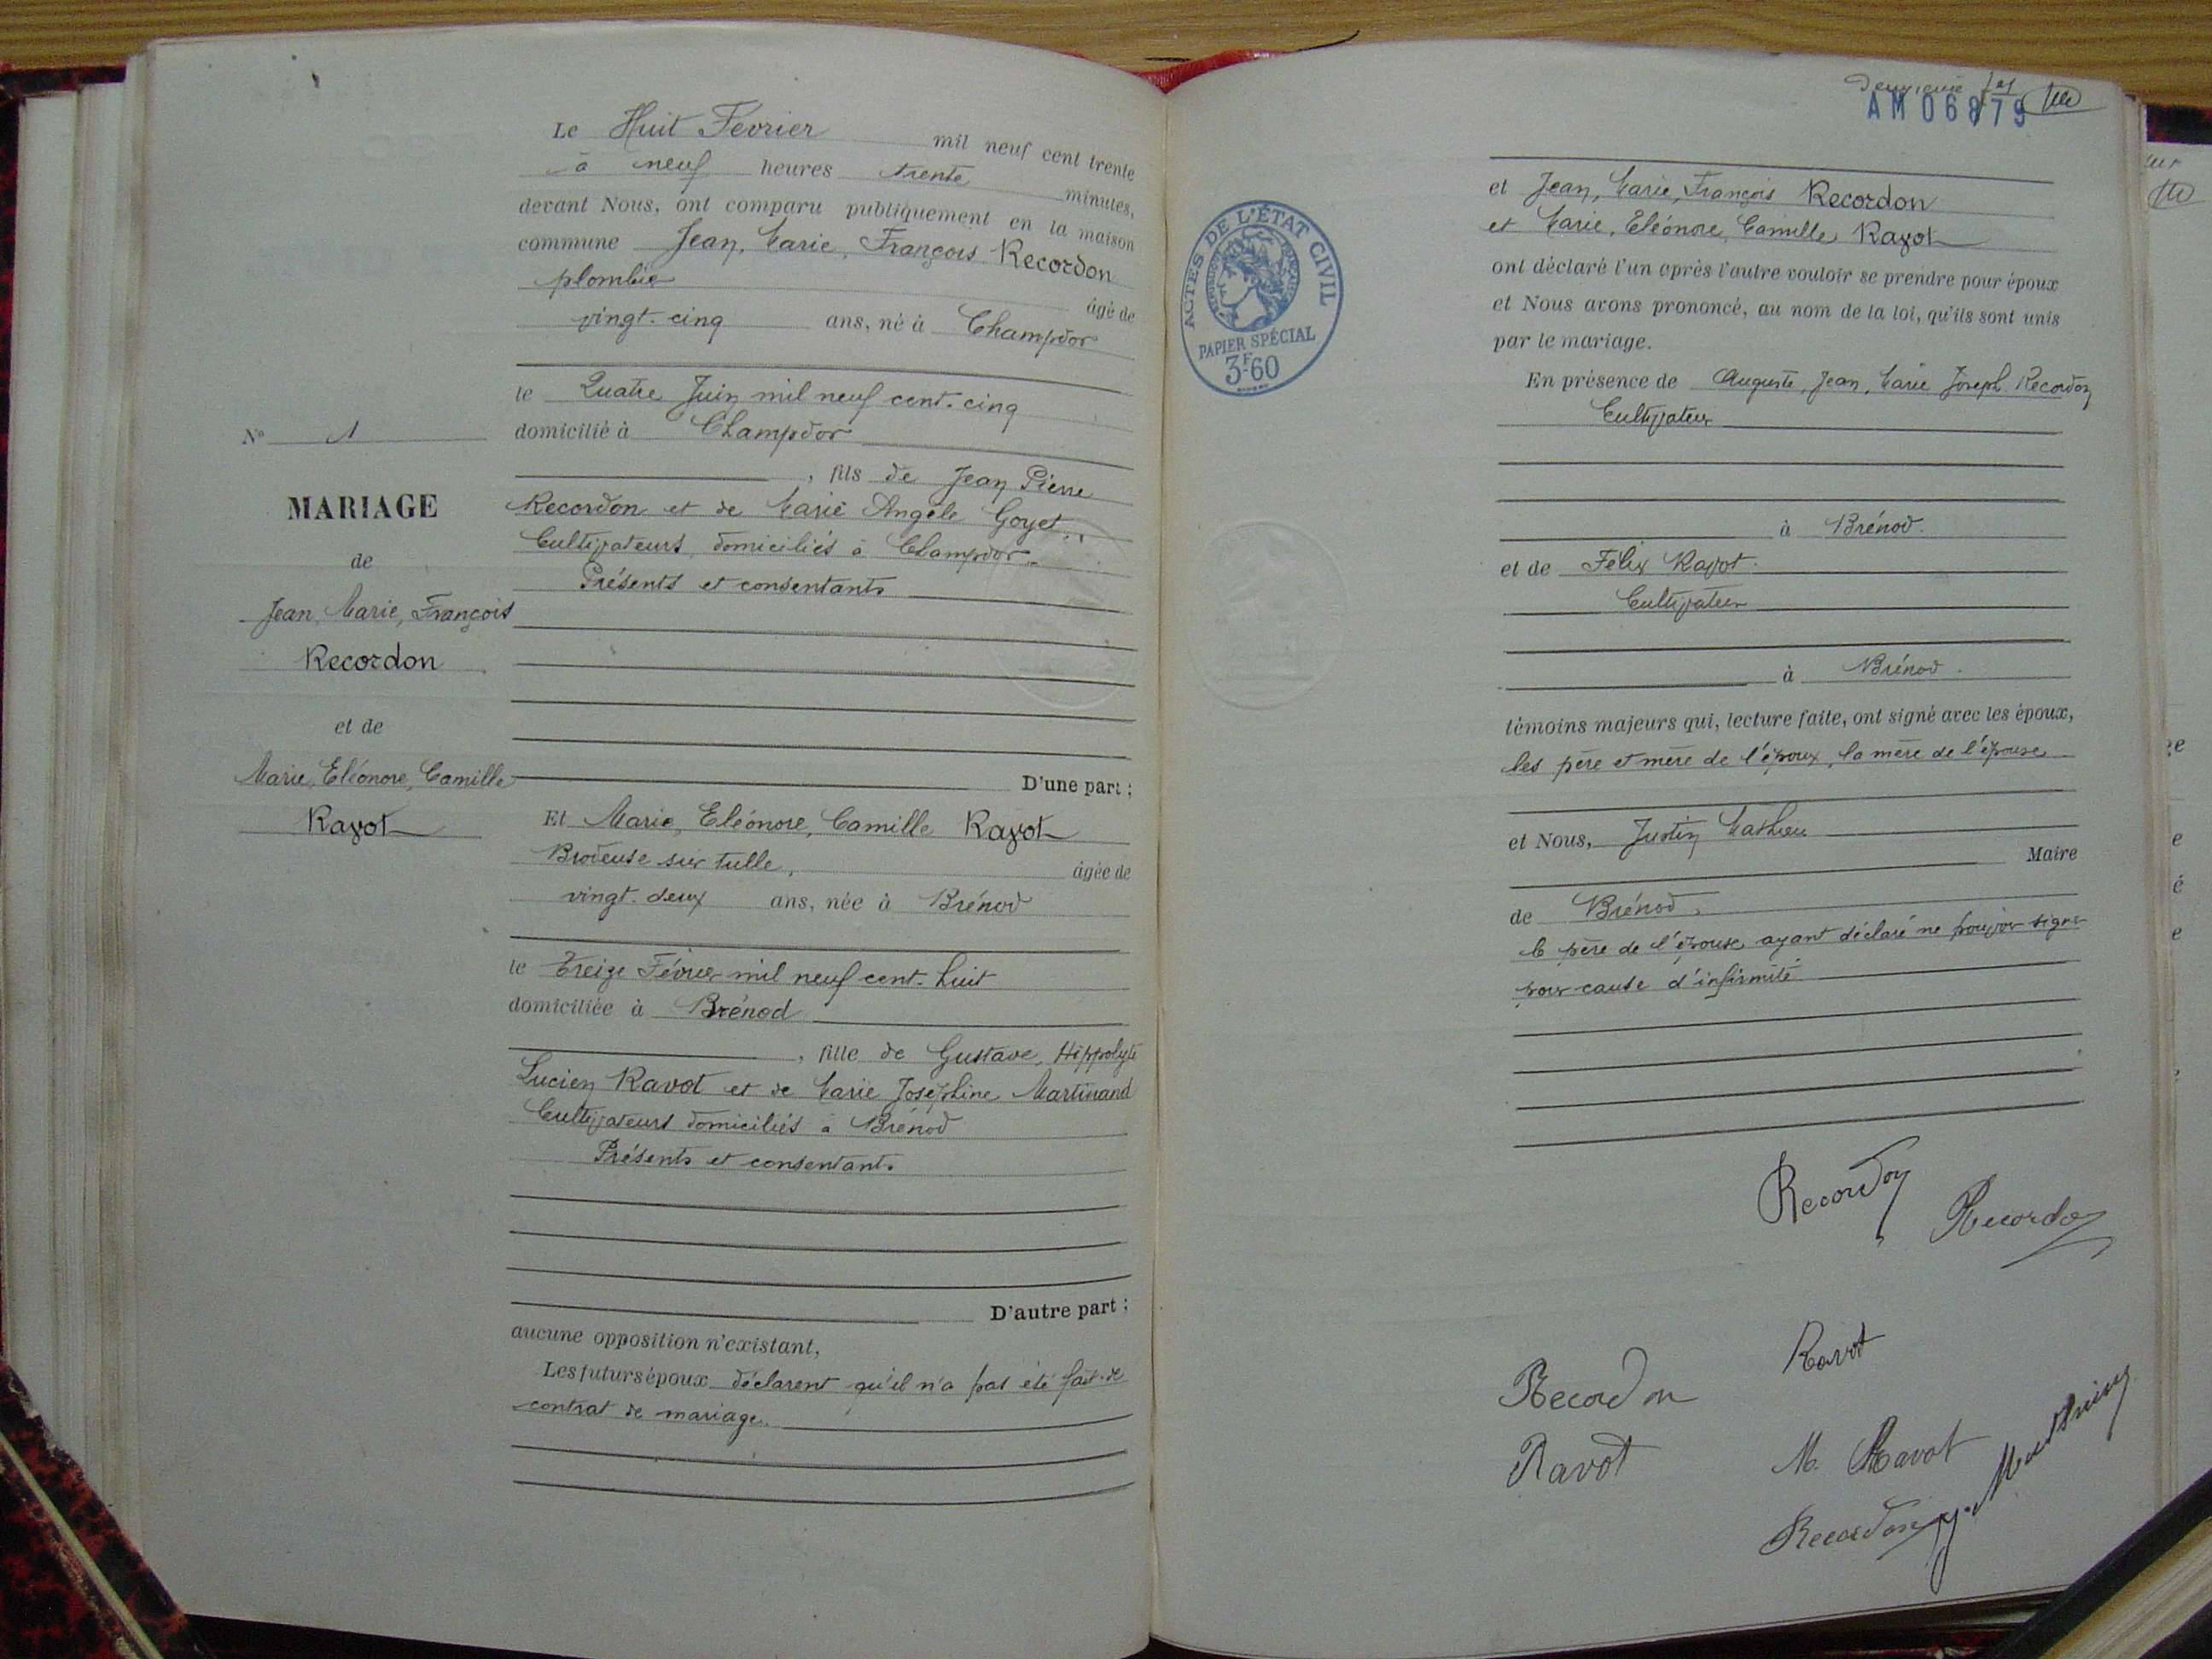 Le Huit Fevrier mil neuf cent trente
à neuf heures trente minutes,
devant Nous, ont comparu publiquement en la maison
commune Jean, Marie, François Recordon
plombier âgé de
vingt-cinq ans, né à Champdor
le Quatre Juin mil neuf cent-cinq
domicilié à Champdor
, fils de Jean Pierre
Recordon et de Marie Angèle Goyet
Cultivateurs, domiciliés à Champdor
Présents et consentants
D'une part ;
N° 1
MARIAGE
de
Jean, Marie, François
Recordon
et de
Marie, Eléonore, Camille
Ravot
Et Marie, Eléonore, Camille Ravot
Brodeuse sur tulle, âgée de
vingt-deux ans, née à Brénod
le Treize Février mil neuf cent-huit
domiciliée à Brénod
, fille de Gustave, Hippolyte
Lucien Ravot et de Marie Joséphine Martinand
Cultivateurs domiciliés à Brénod
Présents et consentants
D'autre part ;
aucune opposition n'existant,
Les futurs époux déclarent qu'il n'a pas été fait de
contrat de mariage.
AM 06879
ACTES DE L'ÉTAT CIVIL
PAPIER SPÉCIAL
3F60
et Jean, Marie, François Recordon
et Marie, Eléonore, Camille Ravot
ont déclaré l'un après l'autre vouloir se prendre pour époux
et Nous avons prononcé, au nom de la loi, qu'ils sont unis
par le mariage.
En présence de Auguste, Jean, Marie Joseph Recordon
Cultivateur
à Brénod.
et de Félix Ravot.
Cultivateur
à Brénod.
témoins majeurs qui, lecture faite, ont signé avec les époux,
les père et mère de l'époux, la mère de l'épouse
et Nous, Justin Mathieu
Maire
de Brénod,
le père de l'épouse ayant déclaré ne pouvoir signer
pour cause d'infirmité
Recordon
Recordon
Ravot
Recordon
Ravot
M. Ravot
Recordon